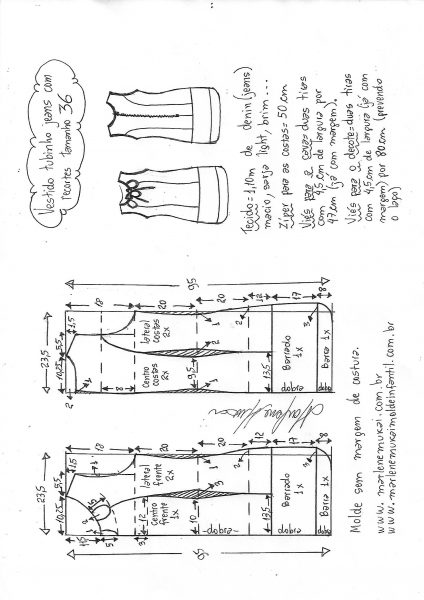 Vestido tubinho jeans com
recortes tamanho 36
Tecido = 1,10m de denin (jeans)
macio, sarja light, brim...
Zíper para as costas = 50cm
Viés para a cavas = duas tiras
com 4,5cm de largura por
47cm (já com margem).
Viés para o decote = duas tiras
com 4,5cm de largura (já com
margem) por 80cm (prevendo
o laço)
95
18
20
20
12
17
8
23,5
5,5
10,25
1,5
2
1
8
lateral
costas
2x
Centro
costas
2x
9,5
1
2
2
3
13,5
Barrado
1x
dobra
Barra 1x
dobra
18
20
20
12
17
8
23,5
5,5
10,25
1,5
3
lateral
frente
2x
Centro
frente
1x
15
5
3
12
10
1
3
2
3
13,5
dobra
Barrado
1x
dobra
Barra 1x
dobra
95
Molde sem margem de costura.
www.marlenemukai.com.br
www.marlenemukaimoldeinfantil.com.br